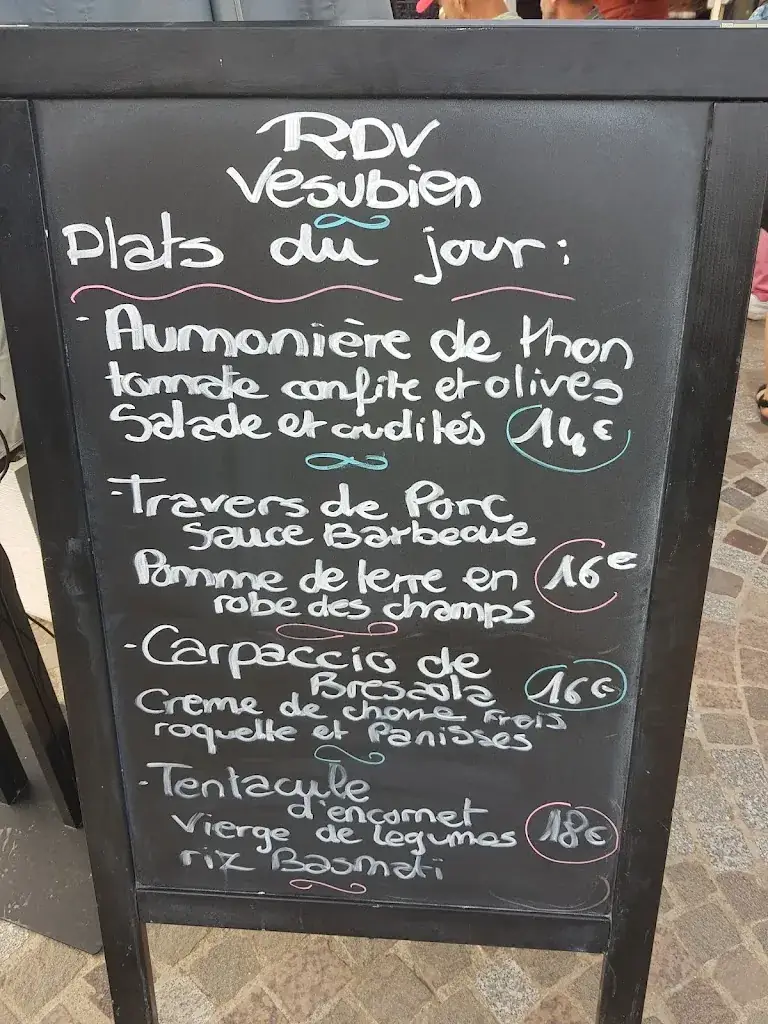 RDV
Vesubien
Plats du jour :
- Aumonière de thon
tomate confite et olives
Salade et crudités 14€
- Travers de Porc
Sauce Barbecue
Pomme de terre en 16€
robe des champs
- Carpaccio de
Bresaola 16€
Creme de chevre Frais
roquette et Panisses
- Tentacule
d'encornet
Vierge de legumes 18€
riz Basmati